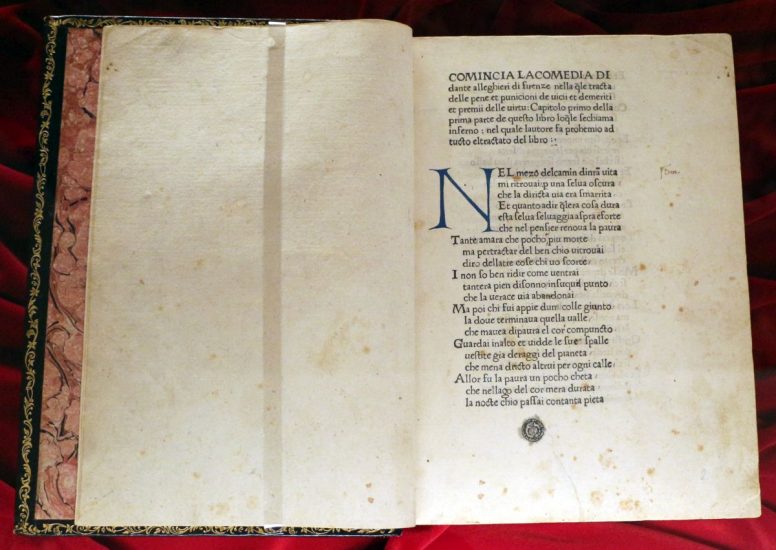 COMINCIA LACOMEDIA DI
dante alleghieri di firenze nella q̄le tracta
delle pene et punicioni de uicii et demeriti
et premii delle uirtu: Capitolo primo della
prima parte de questo libro loq̄le sechiama
inferno: nel quale lautore fa prohemio ad
tucto eltractato del libro:·
NEL mezo delcamin dinr̄a uita
mi ritrouai p una selua oscura
che la diricta uia era smarrita
Et quanto adir q̄lera cosa dura
esta selua seluaggia aspra eforte
che nel pensier renoua la paura
Tante amara che pocho piu morte
ma pertractar del ben chio uitrouai
diro dellatre cose chi uo scorte
I non so ben ridir come uentrai
tantera pien disonno insuquel punto
che la uerace uia abandonai
Ma poi chi fui appie dum colle giunto
la doue terminaua quella ualle
che mauea dipaura el cor compuncto
Guardai inalto et uidde le sue spalle
uestite gia deraggi del pianeta
che mena dricto altrui per ogni calle
Allor fu la paura un pocho cheta
che nellago del cor mera durata
la nocte chio passai contanta pieta
2